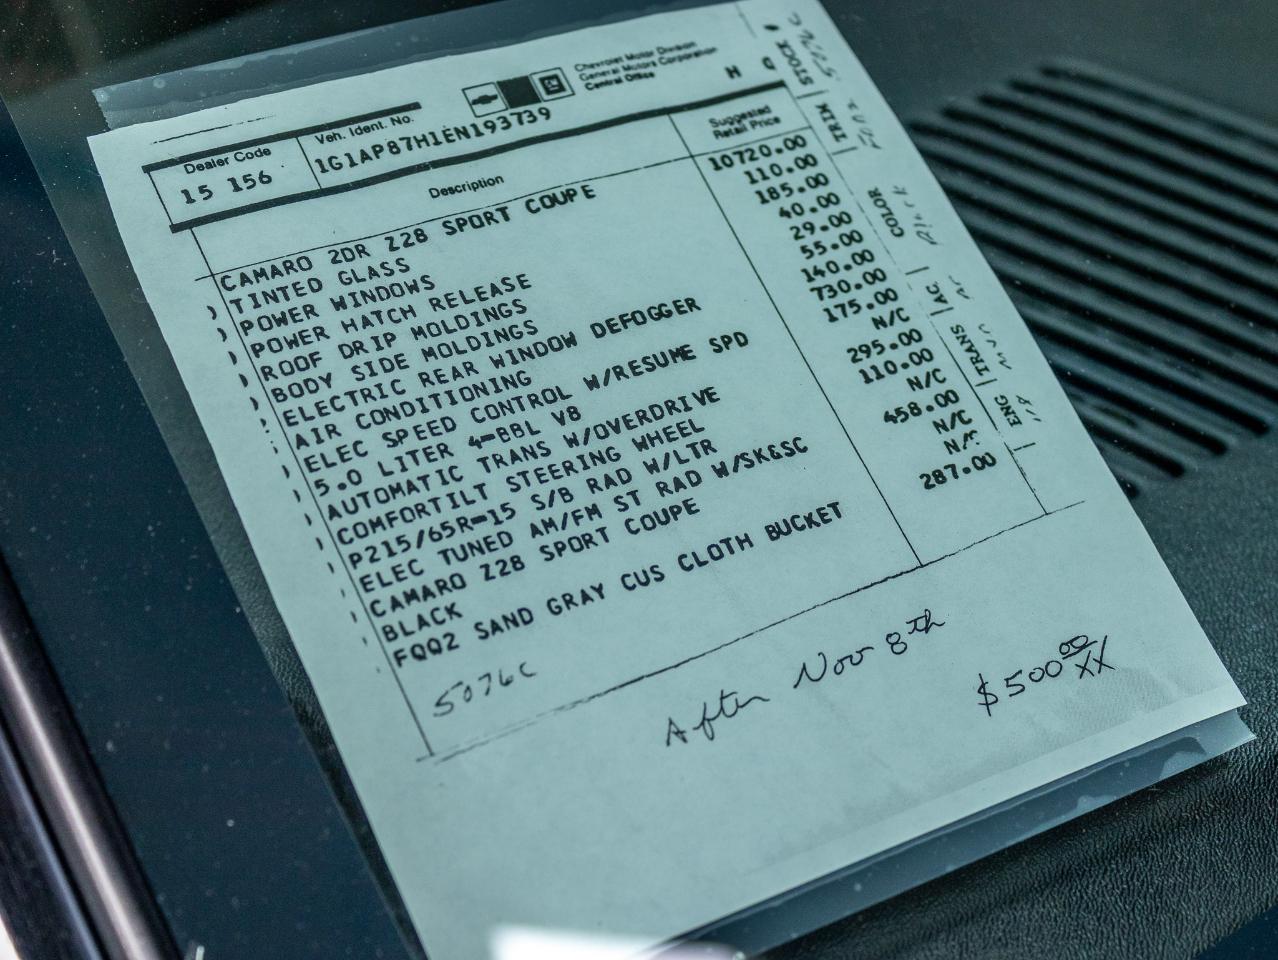 Chevrolet Motor Division
General Motors Corporation
Central Office
H
Dealer Code
15 156
Veh. Ident. No.
1G1AP87H1EN193739
Description
Suggested
Retail Price
CAMARO 2DR Z28 SPORT COUPE 10720.00
TINTED GLASS 110.00
POWER WINDOWS 185.00
POWER HATCH RELEASE 40.00
ROOF DRIP MOLDINGS 29.00
BODY SIDE MOLDINGS 55.00
ELECTRIC REAR WINDOW DEFOGGER 140.00
AIR CONDITIONING 730.00
ELEC SPEED CONTROL W/RESUME SPD 175.00
5.0 LITER 4-BBL V8 N/C
AUTOMATIC TRANS W/OVERDRIVE 295.00
COMFORTILT STEERING WHEEL 110.00
P215/65R-15 S/B RAD W/LTR N/C
ELEC TUNED AM/FM ST RAD W/SK&SC 458.00
CAMARO Z28 SPORT COUPE N/C
BLACK N/C
FQQ2 SAND GRAY CUS CLOTH BUCKET 287.00
5076C
After Nov 8th
$500 00/XX
STOCK #
TRIM
COLOR Black
AC
TRANS
ENG